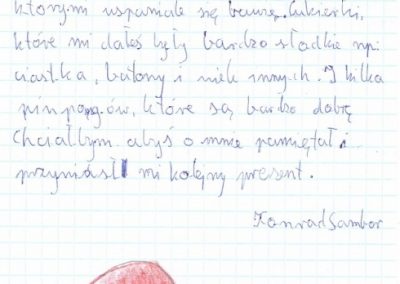 którymi wspaniale się bawię. Cukierki,
które mi dałeś były bardzo słodkie np:
ciastka, batony i wiele innych. I kilka
pinpongów, które są bardzo dobrę
Chciałbym abyś o mnie pamiętał i
przyniósł mi kolejny present.
Konrad Sambor